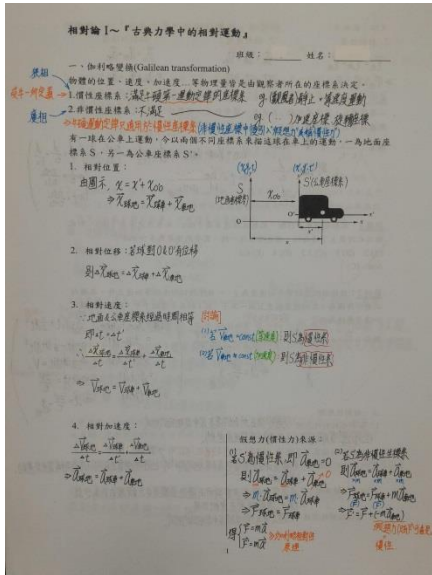 相對論 I～『古典力學中的相對運動』
班級： 姓名：
一、伽利略變換(Galilean transformation)
物體的位置、速度、加速度…等物理量皆是由觀察者所在的座標系決定。
1.慣性座標系：滿足牛頓第一運動定律的座標系 eg (觀察者)靜止、等速度運動
2.非慣性座標系：不滿足 eg (〃) 加速座標、旋轉座標
⇒牛頓運動定律只適用於慣性座標系(非慣性座標中要引入"假想力"亦稱慣性力")
有一球在公車上運動，今以兩個不同座標系來描述球在車上的運動，一為地面座
標系 S，另一為公車座標系 S'。
1. 相對位置：
由圖示，x = x' + x₀'₀
⇒ x⃗球地 = x⃗球車 + x⃗車地
S
(地面座標系)
S'(公車座標系)
O
O'
x'
x
2. 相對位移：若球對O&O'有位移
則 Δx⃗球地 = Δx⃗球車 + Δx⃗車地
3. 相對速度：
∵地面&公車座標系經過時間相等
即 Δt = Δt'
∴ Δx⃗球地/Δt = Δx⃗球車/Δt + Δx⃗車地/Δt
⇒ V⃗球地 = V⃗球車 + V⃗車地
[討論]
(1)若 V⃗車地 = const(等速度) 則S'為慣性系
(2)若 V⃗車地 ≠ const(加速度) 則S'為非慣性系
4. 相對加速度：
ΔV⃗球地/Δt = ΔV⃗球車/Δt + ΔV⃗車地/Δt
⇒ a⃗球地 = a⃗球車 + a⃗車地
假想力(慣性力)來源：
(1)若S'為慣性系，即 a⃗車地 = 0
則 a⃗球地 = a⃗球車 + a⃗車地 0
⇒ m a⃗球地 = m a⃗球車
⇒ F⃗球地 = F⃗球車
得 F⃗ = ma⃗
F⃗' = ma⃗'
(2)若S'為非慣性座標系
則 a⃗球地 = a⃗球車 + a⃗車地
⇒ F⃗球地 = F⃗球車 + m a⃗車地
⇒ F⃗' = F⃗ + (-m a⃗車地)
1